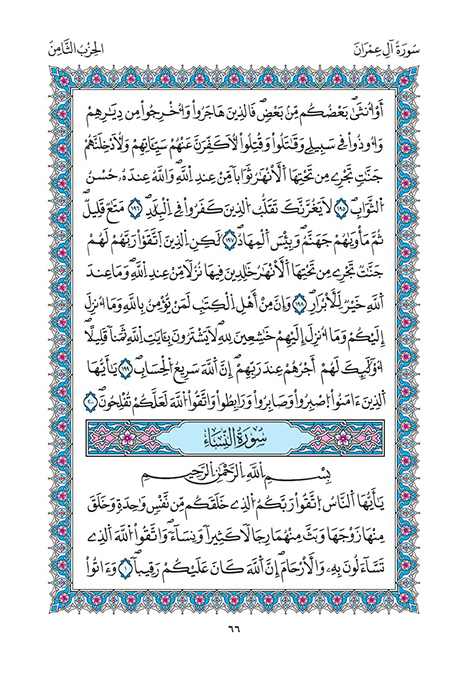 سُورَةُ آلِ عِمْرَانَ
الحِزْبُ الثَّامِنُ
أَوُ ا۟نث۪ىٰۖ بَعْضُكُم مِّنۢ بَعْضٖۖ فَالذِينَ هَاجَرُوا۟ وَأُخْرِجُوا۟ مِن دِيٰ۪رِهِمْ
وَأُوذُوا۟ فِے سَبِيلِے وَقَٰتَلُوا۟ وَقُتِلُوا۟ لَأُكَفِّرَنَّ عَنْهُمْ سَيِّـَٔاتِهِمْ وَلَأُدْخِلَنَّهُمْ
جَنَّٰتٖ تَجْرِے مِن تَحْتِهَا اَ۬لْأَنْهَٰرُ ثَوَاباٗ مِّنْ عِندِ اِ۬للَّهِۖ وَاللَّهُ عِندَهُۥ حُسْنُ
اُ۬لثَّوَابِۖ ١٩٥ لَا يَغُرَّنَّكَ تَقَلُّبُ اُ۬لذِينَ كَفَرُوا۟ فِے اِ۬لْبِلَٰدِۖ ١٩٦ مَتَٰعٞ قَلِيلٞۖ
ثُمَّ مَأْو۪يٰهُمْ جَهَنَّمُۖ وَبِيسَ اَ۬لْمِهَادُۖ ١٩٧ لَٰكِنِ اِ۬لذِينَ اَ۪تَّقَوْا۟ رَبَّهُمْ لَهُمْ
جَنَّٰتٞ تَجْرِے مِن تَحْتِهَا اَ۬لْأَنْهَٰرُ خَٰلِدِينَ فِيهَا نُزُلاٗ مِّنْ عِندِ اِ۬للَّهِۖ وَمَا عِندَ
اَ۬للَّهِ خَيْرٞ لِّلْأَبْر۪ارِۖ ١٩٨ وَإِنَّ مِنْ أَهْلِ اِ۬لْكِتَٰبِ لَمَنْ يُّؤْمِنُ بِاللَّهِ وَمَا أُنزِلَ
إِلَيْكُمْ وَمَا أُنزِلَ إِلَيْهِمْ خَٰشِعِينَ لِلهِ لَا يَشْتَرُونَ بِـَٔايَٰتِ اِ۬للَّهِ ثَمَناٗ قَلِيلاًۖ
ا۟وْلَٰٓئِكَ لَهُمْ أَجْرُهُمْ عِندَ رَبِّهِمْۖ إِنَّ اَ۬للَّهَ سَرِيعُ اُ۬لْحِسَابِۖ ١٩٩ يَٰٓأَيُّهَا
اَ۬لذِينَ ءَامَنُوا۟ اُ۪صْبِرُوا۟ وَصَابِرُوا۟ وَرَابِطُوا۟ وَاتَّقُوا۟ اُ۬للَّهَ لَعَلَّكُمْ تُفْلِحُونَۖ ٢٠٠
سُورَةُ النِّسَاءِ
بِسْمِ اللَّهِ الرَّحْمَٰنِ الرَّحِيمِ
يَٰٓأَيُّهَا اَ۬لنَّاسُ اُ۪تَّقُوا۟ رَبَّكُمُ اُ۬لذِے خَلَقَكُم مِّن نَّفْسٖ وَٰحِدَةٖ وَخَلَقَ
مِنْهَا زَوْجَهَا وَبَثَّ مِنْهُمَا رِجَالاٗ كَثِيراٗ وَنِسَآءٗۖ وَاتَّقُوا۟ اُ۬للَّهَ اَ۬لذِے
تَسَّآءَلُونَ بِهِۦ وَالْأَرْحَامَۖ إِنَّ اَ۬للَّهَ كَانَ عَلَيْكُمْ رَقِيباٗۖ ١ وَءَاتُوا۟
٦٦